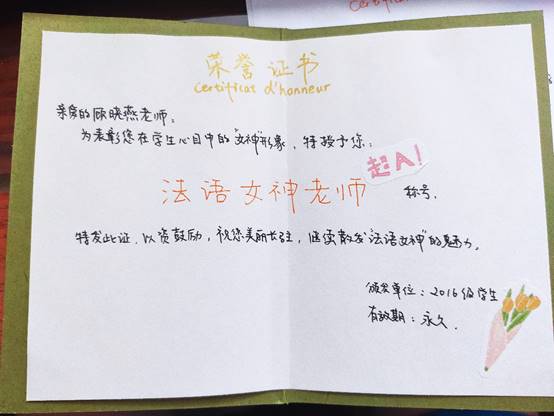 荣誉证书
Certificat d'honneur
亲爱的顾晓燕老师：
为表彰您在学生心目中的"女神"形象，特授予您：
超A!
法语女神老师 称号.
特发此证，以资鼓励，祝您美丽长驻，继续散发"法语女神"的魅力。
颁发单位：2016级学生
有效期：永久.